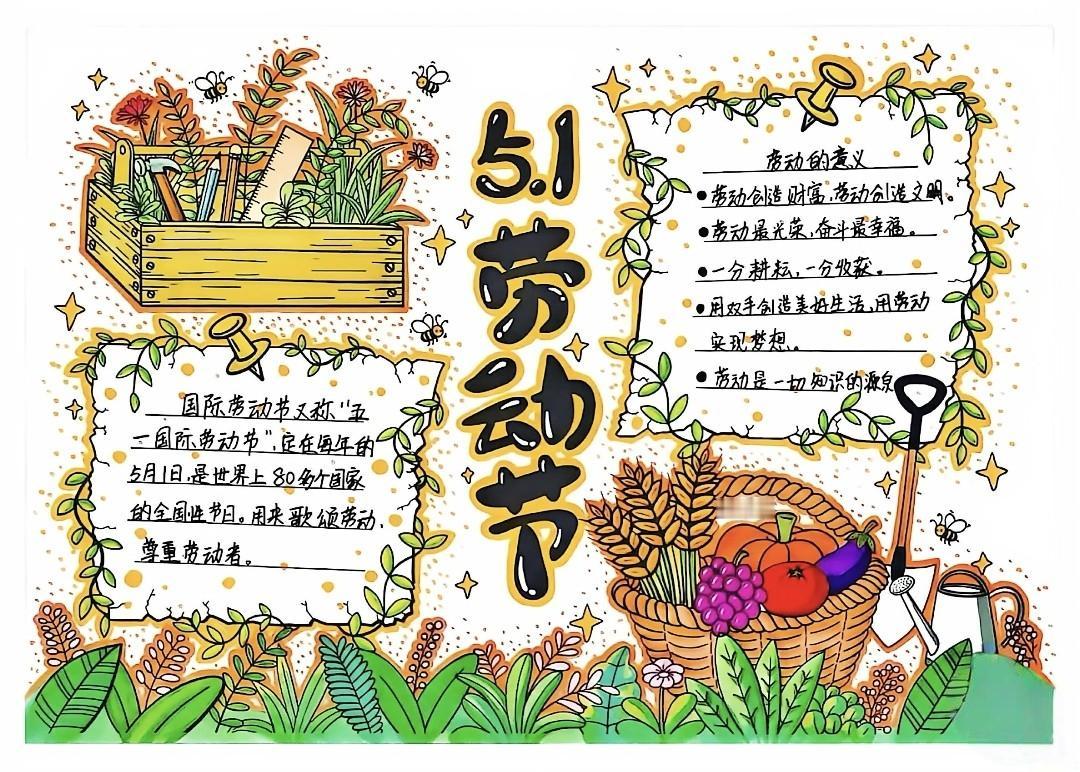 5.1
劳动节
国际劳动节又称“五
一国际劳动节”,定在每年的
5月1日,是世界上80多个国家
的全国性节日。用来歌颂劳动,
尊重劳动者。
劳动的意义
●劳动创造财富,劳动创造文明。
●劳动最光荣,奋斗最幸福。
●一分耕耘,一分收获。
●用双手创造美好生活,用劳动
实现梦想。
●劳动是一切知识的源泉